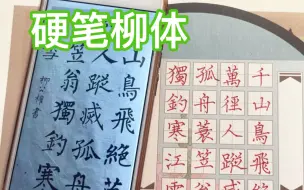 硬笔柳体
山鳥飛絕
人蹤滅孤舟
笠翁獨釣寒
雪
柳公權書
千山鳥飛絕
萬徑人蹤滅
孤舟蓑笠翁
獨釣寒江雪